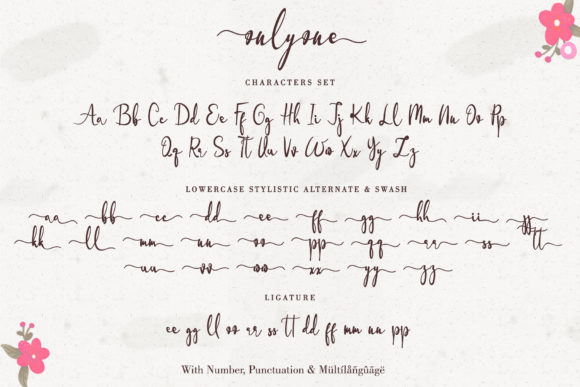 onlyone
CHARACTERS SET
Aa Bb Cc Dd Ee Ff Gg Hh Ii Jj Kk Ll Mm Nn Oo Pp
Qq Rr Ss Tt Uu Vv Ww Xx Yy Zz
LOWERCASE STYLISTIC ALTERNATE & SWASH
aa bb cc dd ee ff gg hh ii jj
kk ll mm nn oo pp qq rr ss tt
uu vv ww xx yy zz
LIGATURE
ee gg ll oo rr ss tt dd ff mm nn pp
With Number, Punctuation & Mültílåñgûãgë